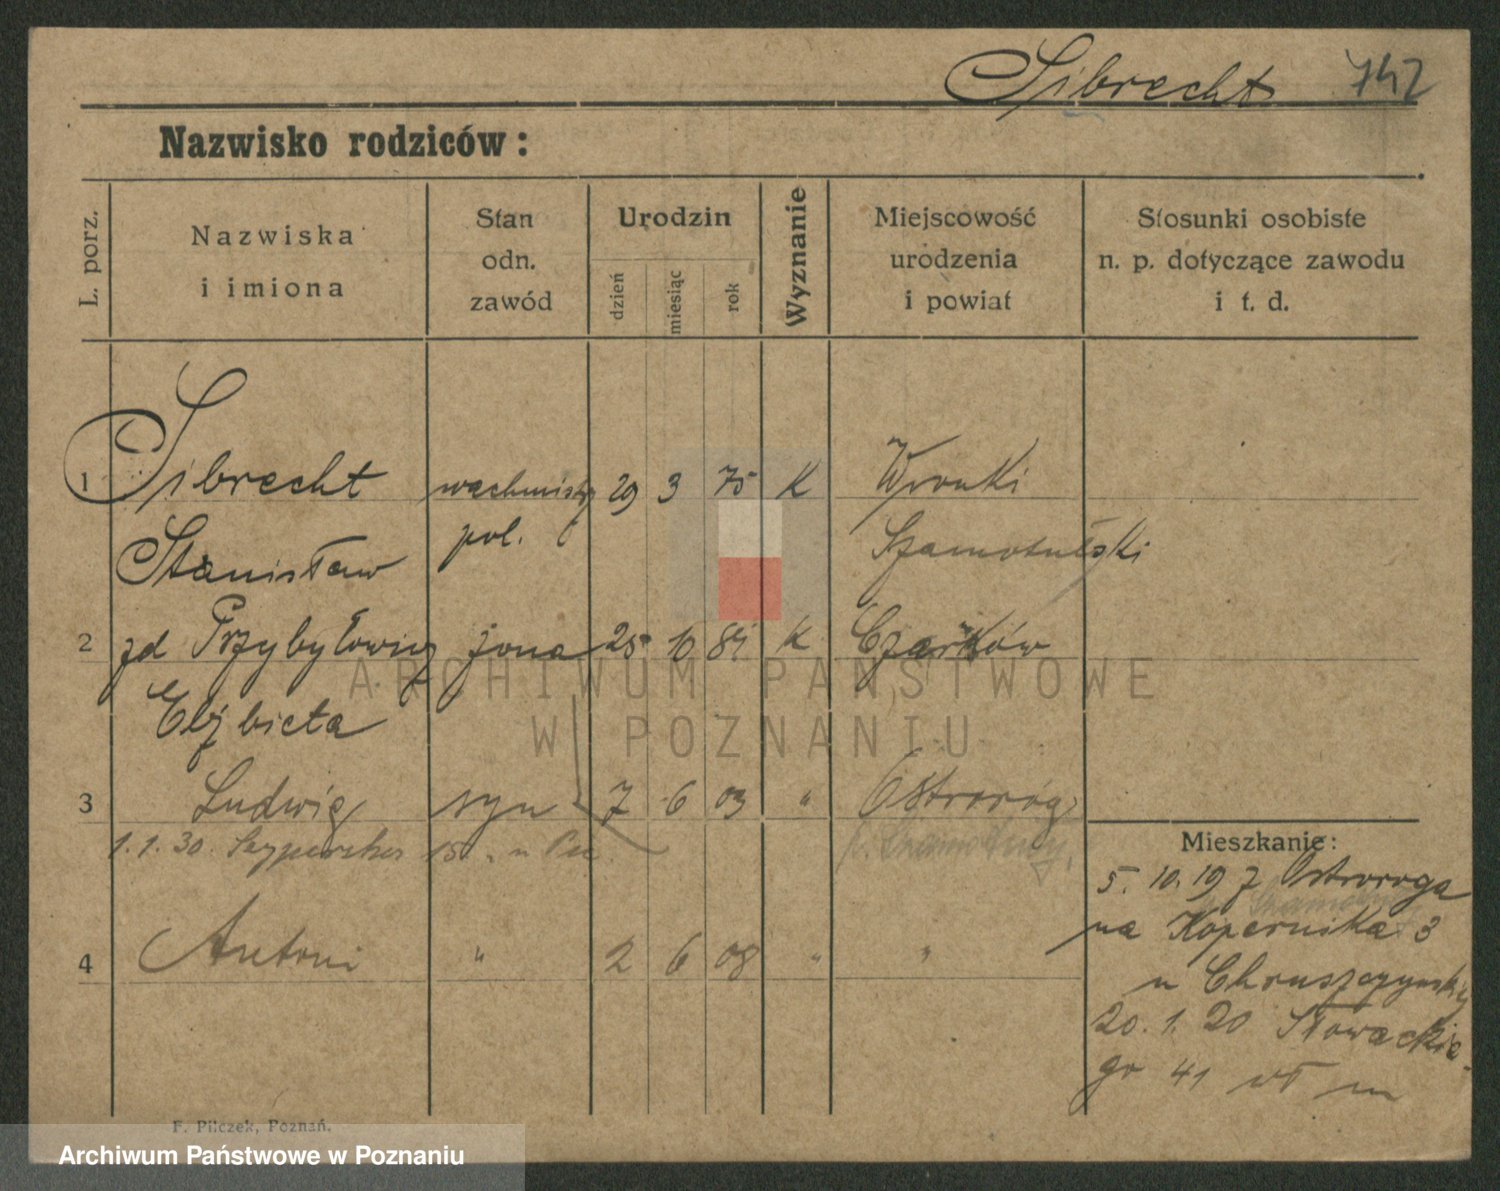 Sibrecht 742
Nazwisko rodziców:
L. porz.
Nazwiska
i imiona
Stan
odn.
zawód
Urodzin
dzień
miesiąc
rok
Wyznanie
Miejscowość
urodzenia
i powiat
Stosunki osobiste
n. p. dotyczące zawodu
i t. d.
1 Sibrecht wachmistrz 29 3 75 K Wronki
Stanisław pol. Szamotulski
2 zd Przybyłowicz żona 25 10 84 K Czarków
Elżbieta
3 Ludwig syn 7 6 03 " Ostroróg
1.1.30.
p. Szamotuły
4 Antoni " 2 6 08 " "
Mieszkanie:
5. 10. 19 z Ostroroga
na Kopernika 3
u Chruszczyński
20. 1. 20 Słowackie-
go 41 wł m
F. Pilczek, Poznań.
ARCHIWUM PAŃSTWOWE
W POZNANIU
Archiwum Państwowe w Poznaniu